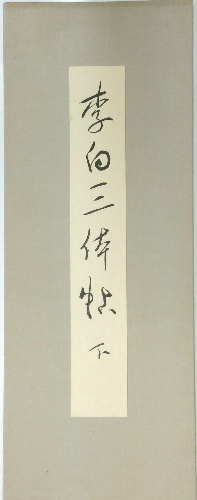 李白三体帖 下